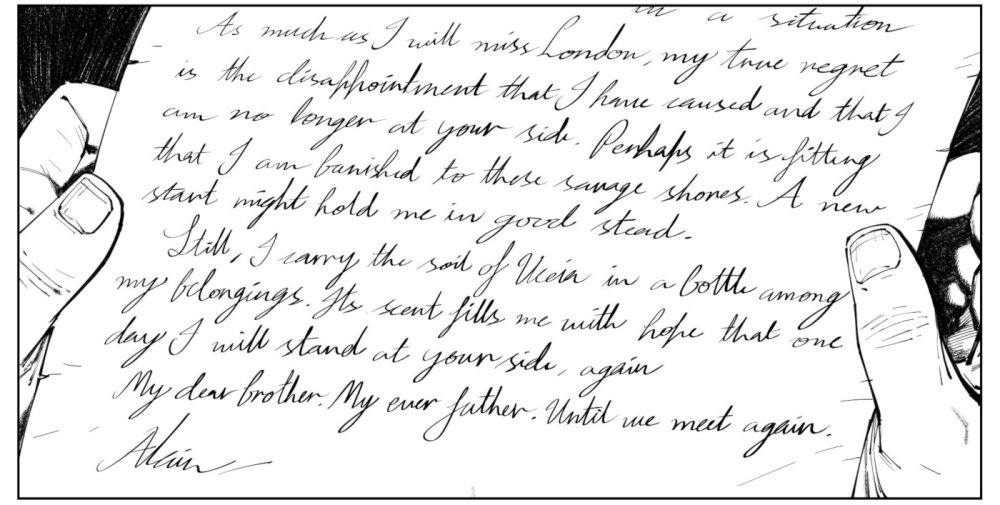 in a situation
As much as I will miss London, my true regret
is the disappointment that I have caused and that I
am no longer at your side. Perhaps it is fitting
that I am banished to these savage shores. A new
start might hold me in good stead.
Still, I carry the soil of in a bottle among
my belongings. Its scent fills me with hope that one
day I will stand at your side, again
My dear brother. My ever father. Until we meet again.
Alain